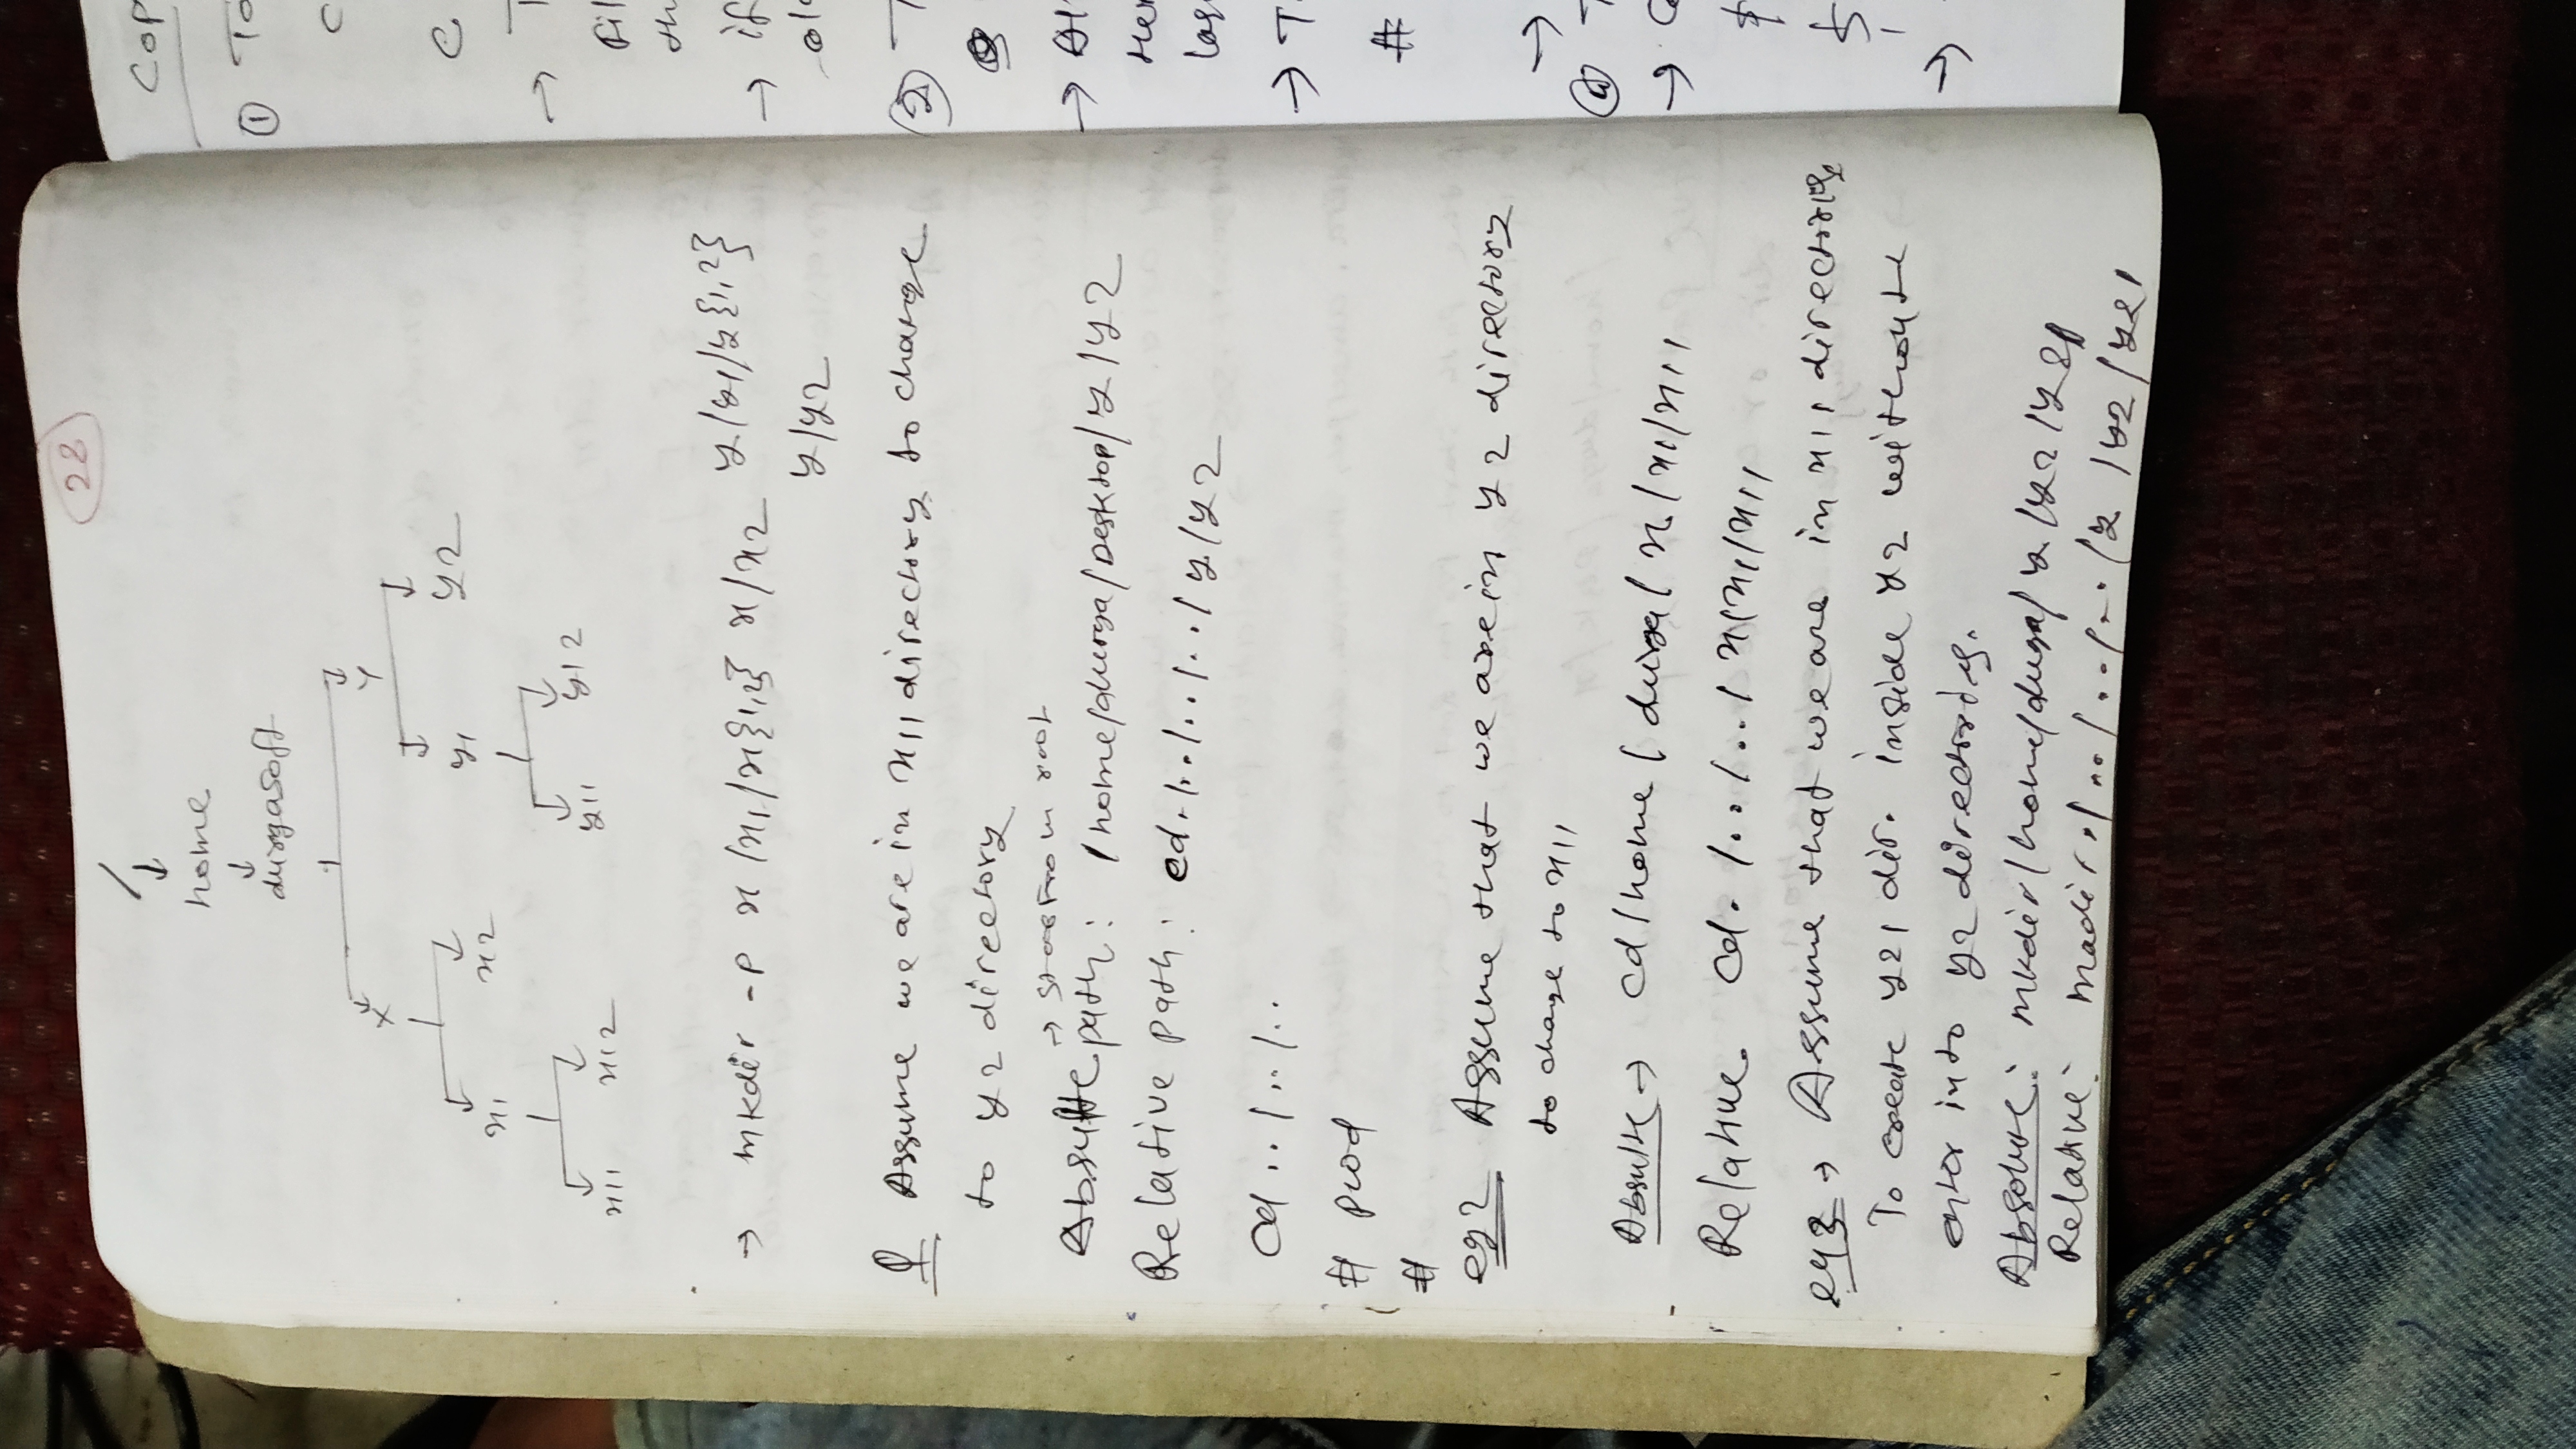 22
/
home
durgasoft
x y
x1 x2 y1 y2
x11 x12 y11 y12
→ mkdir -p x/x1/x{1,2} x/x2 y/y1/y{1,2}
y/y2
Assume we are in x11 directory to change
to y2 directory
→ start from root
Absulte path: /home/durga/Desktop/y/y2
Relative path: cd ./../../../y/y2
Cd ../../..
# pwd
#
eg2 Assume that we are in y2 directory
to change to x11
Absulte → cd/home/durga/x/x1/x11
Relative. cd. /../../x/x1/x11
eg3 → Assume that we are in x11 directories
To create y21 dir. inside y2 without
enter into y2 directories.
Absolute: mkdir/home/durga/y/y2/y21
Relative: madir ./../../../y/y2/y21
COP
① To
C
C
→ T
Fil
th
→ if
old
② T
→ All
then
las
→ T
#
→
→ C
$
→